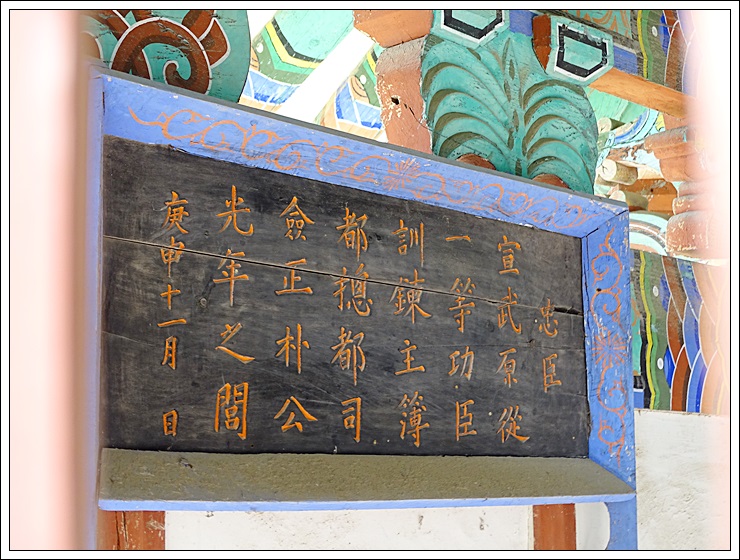 忠臣
宣武原從
一等功臣
訓鍊主簿
都摠都司
僉正朴公
光年之閭
庚申十一月 日